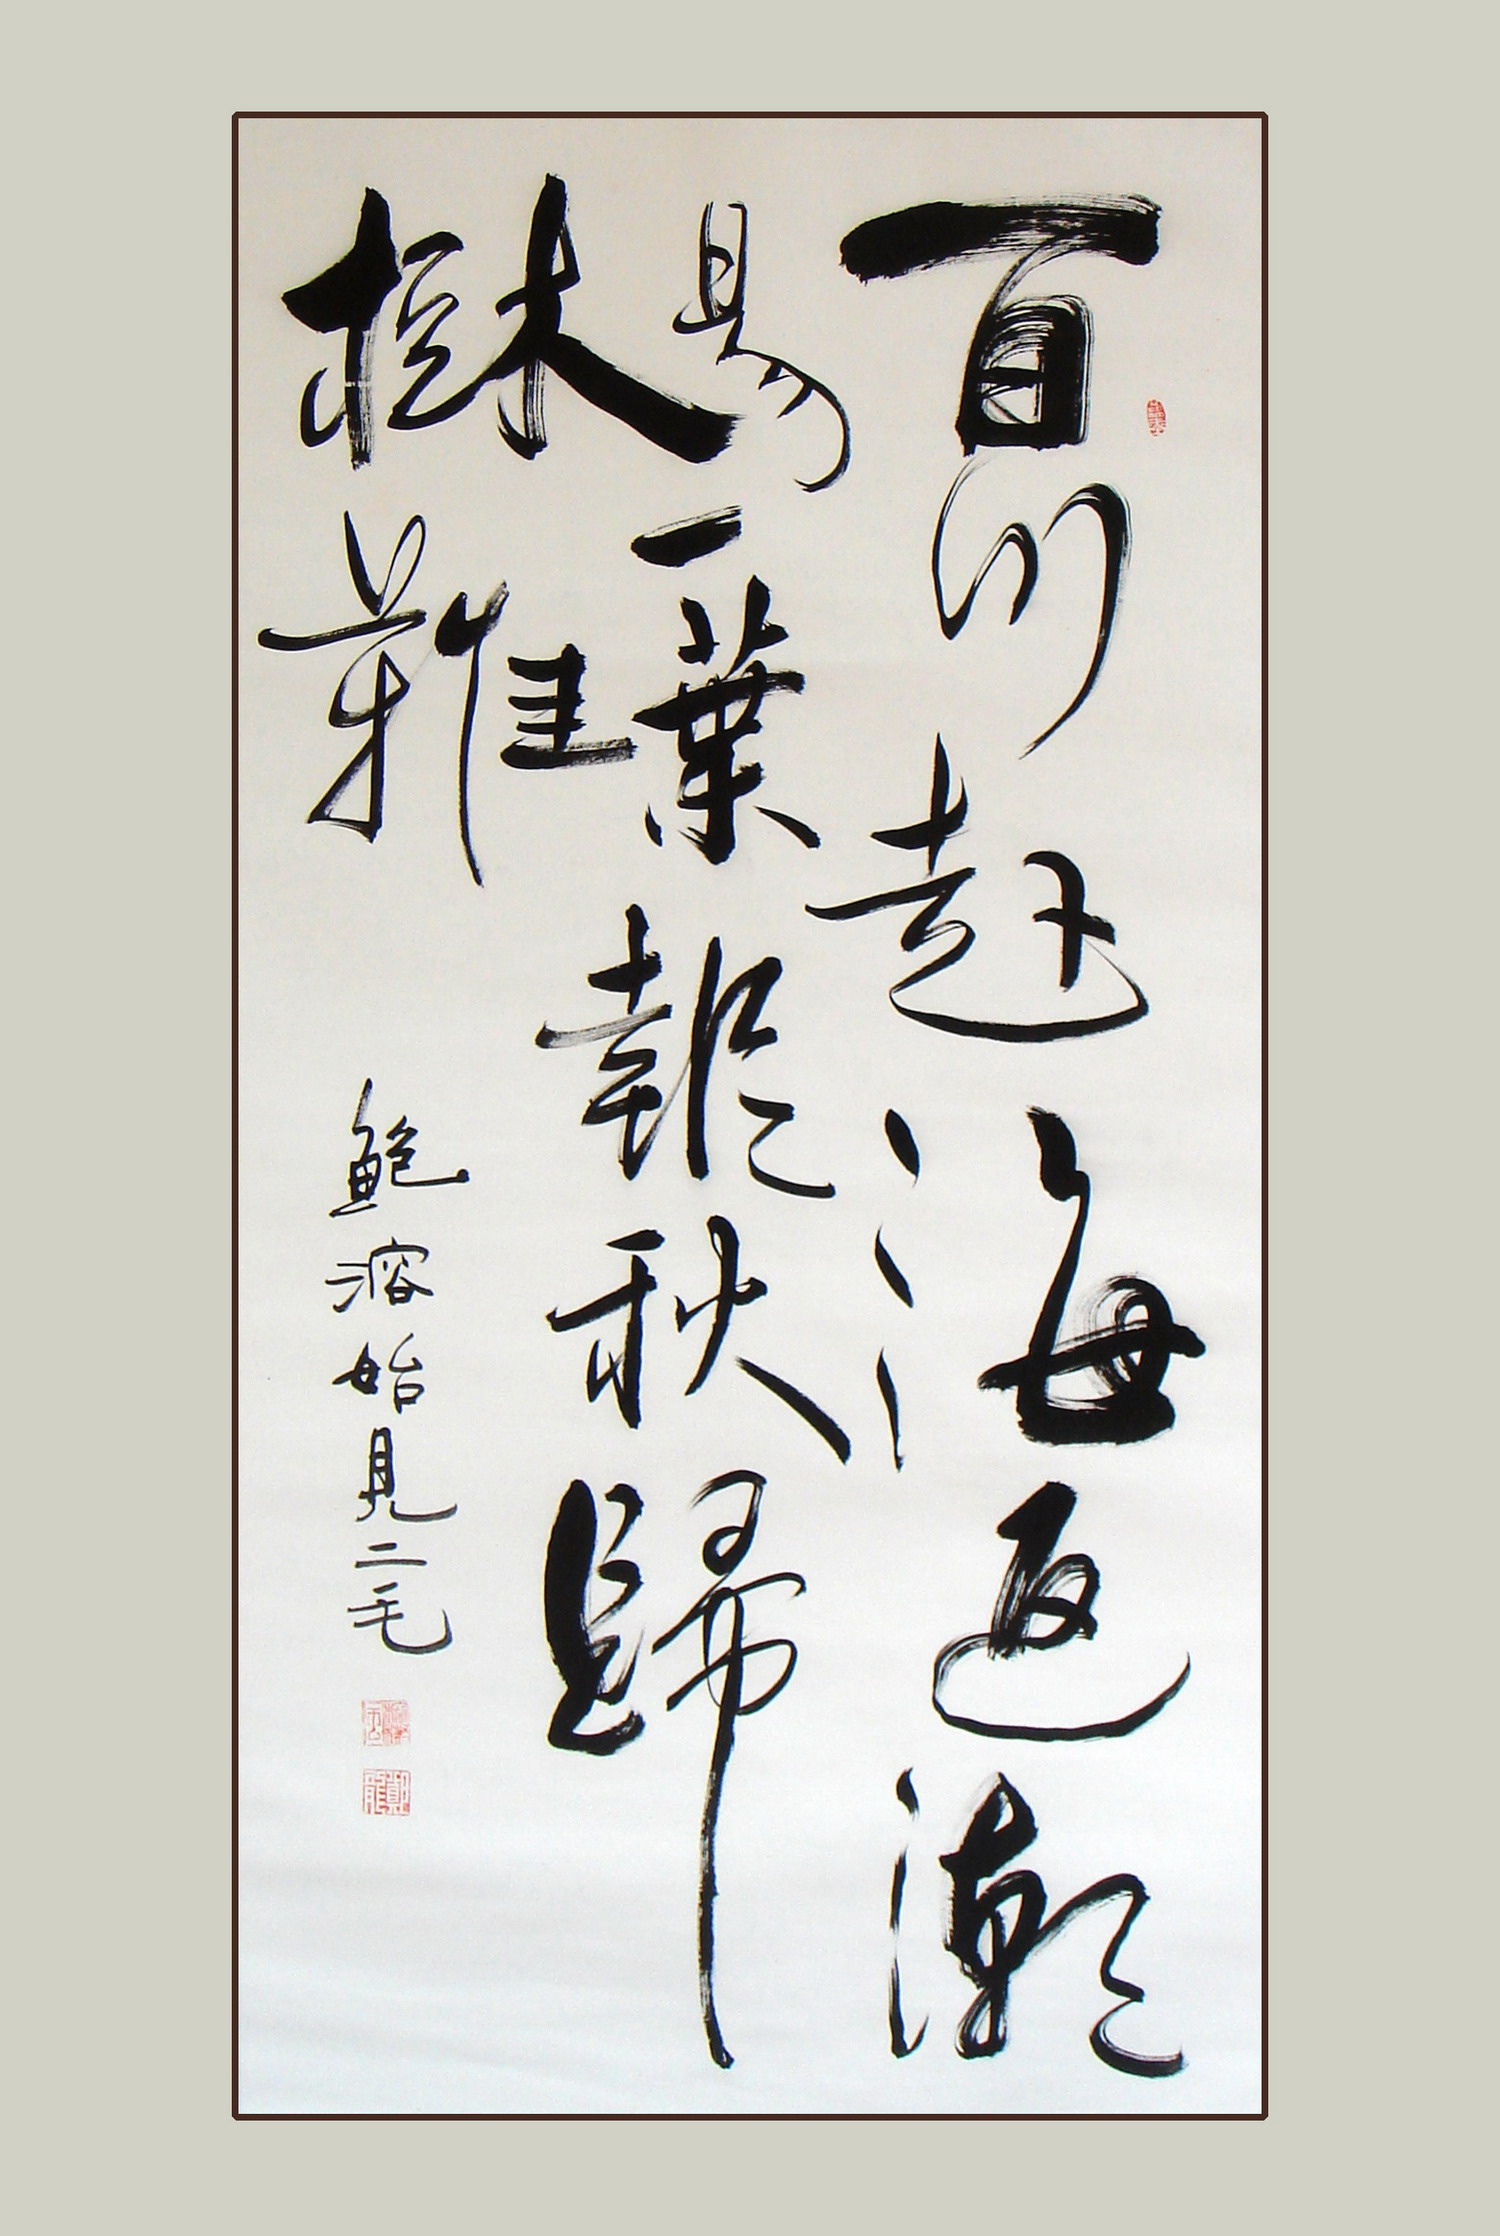 百川赴海返潮
易一葉報秋歸
樹難
鮑溶始見二毛